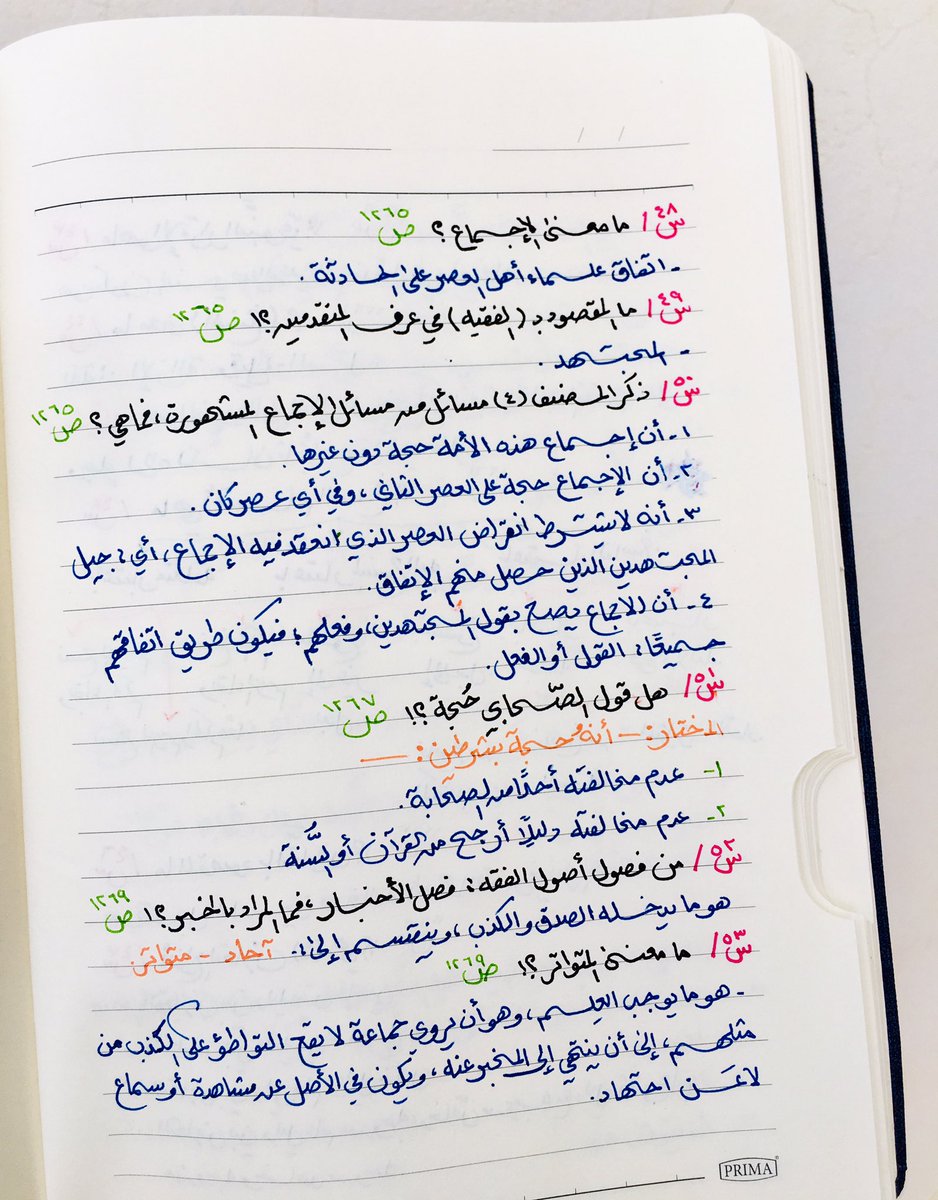 س٤٨/ ما معنى الإجماع؟ ص١٢٦٥
- اتفاق علماء أهل العصر على الحادثة.
س٤٩/ ما المقصود بـ (الفقيه) في عرف المتقدمين؟! ص١٢٦٥
- المجتهد.
س٥٠/ ذكر المصنف (٤) مسائل من مسائل الإجماع المشهورة، فما هي؟ ص١٢٦٥
١- أن إجماع هذه الأمة حجة دون غيرها.
٢- أن الإجماع حجة على العصر الثاني، وفي أي عصر كان.
٣- أنه لا يشترط انقراض العصر الذي انعقد فيه الإجماع، أي: جيل
المجتهدين الذين حصل منهم الإتفاق.
٤- أن الاجماع يصح بقول المجتهدين، وفعلهم؛ فيكون طريق اتفاقهم
جميعًا: القول أو الفعل.
س٥١/ هل قول الصّحابي حُجة؟! ص١٢٦٧
المختار: - أنه حُجة بشرطين: ـــ
١- عدم مخالفته أحدًا من الصحابة.
٢- عدم مخالفته دليلًا أرجح من القرآن أو السُّنة.
س٥٢/ من فصول أصول الفقه: فصل الأخبار، فما المراد بالخبر؟! ص١٢٦٩
هو ما يدخله الصدق والكذب، وينقسم إلى: آحاد - متواتر.
س٥٣/ ما معنى المتواتر؟! ص١٢٦٩
- هو ما يوجب العلم، وهو أن يروي جماعة لا يقع التواطؤ على الكذب من
مثلهم، إلى أن ينتهي إلى المخبر عنه، ويكون في الأصل عن مشاهدة أو سماع
لا عَن اجتهاد.
PRIMA